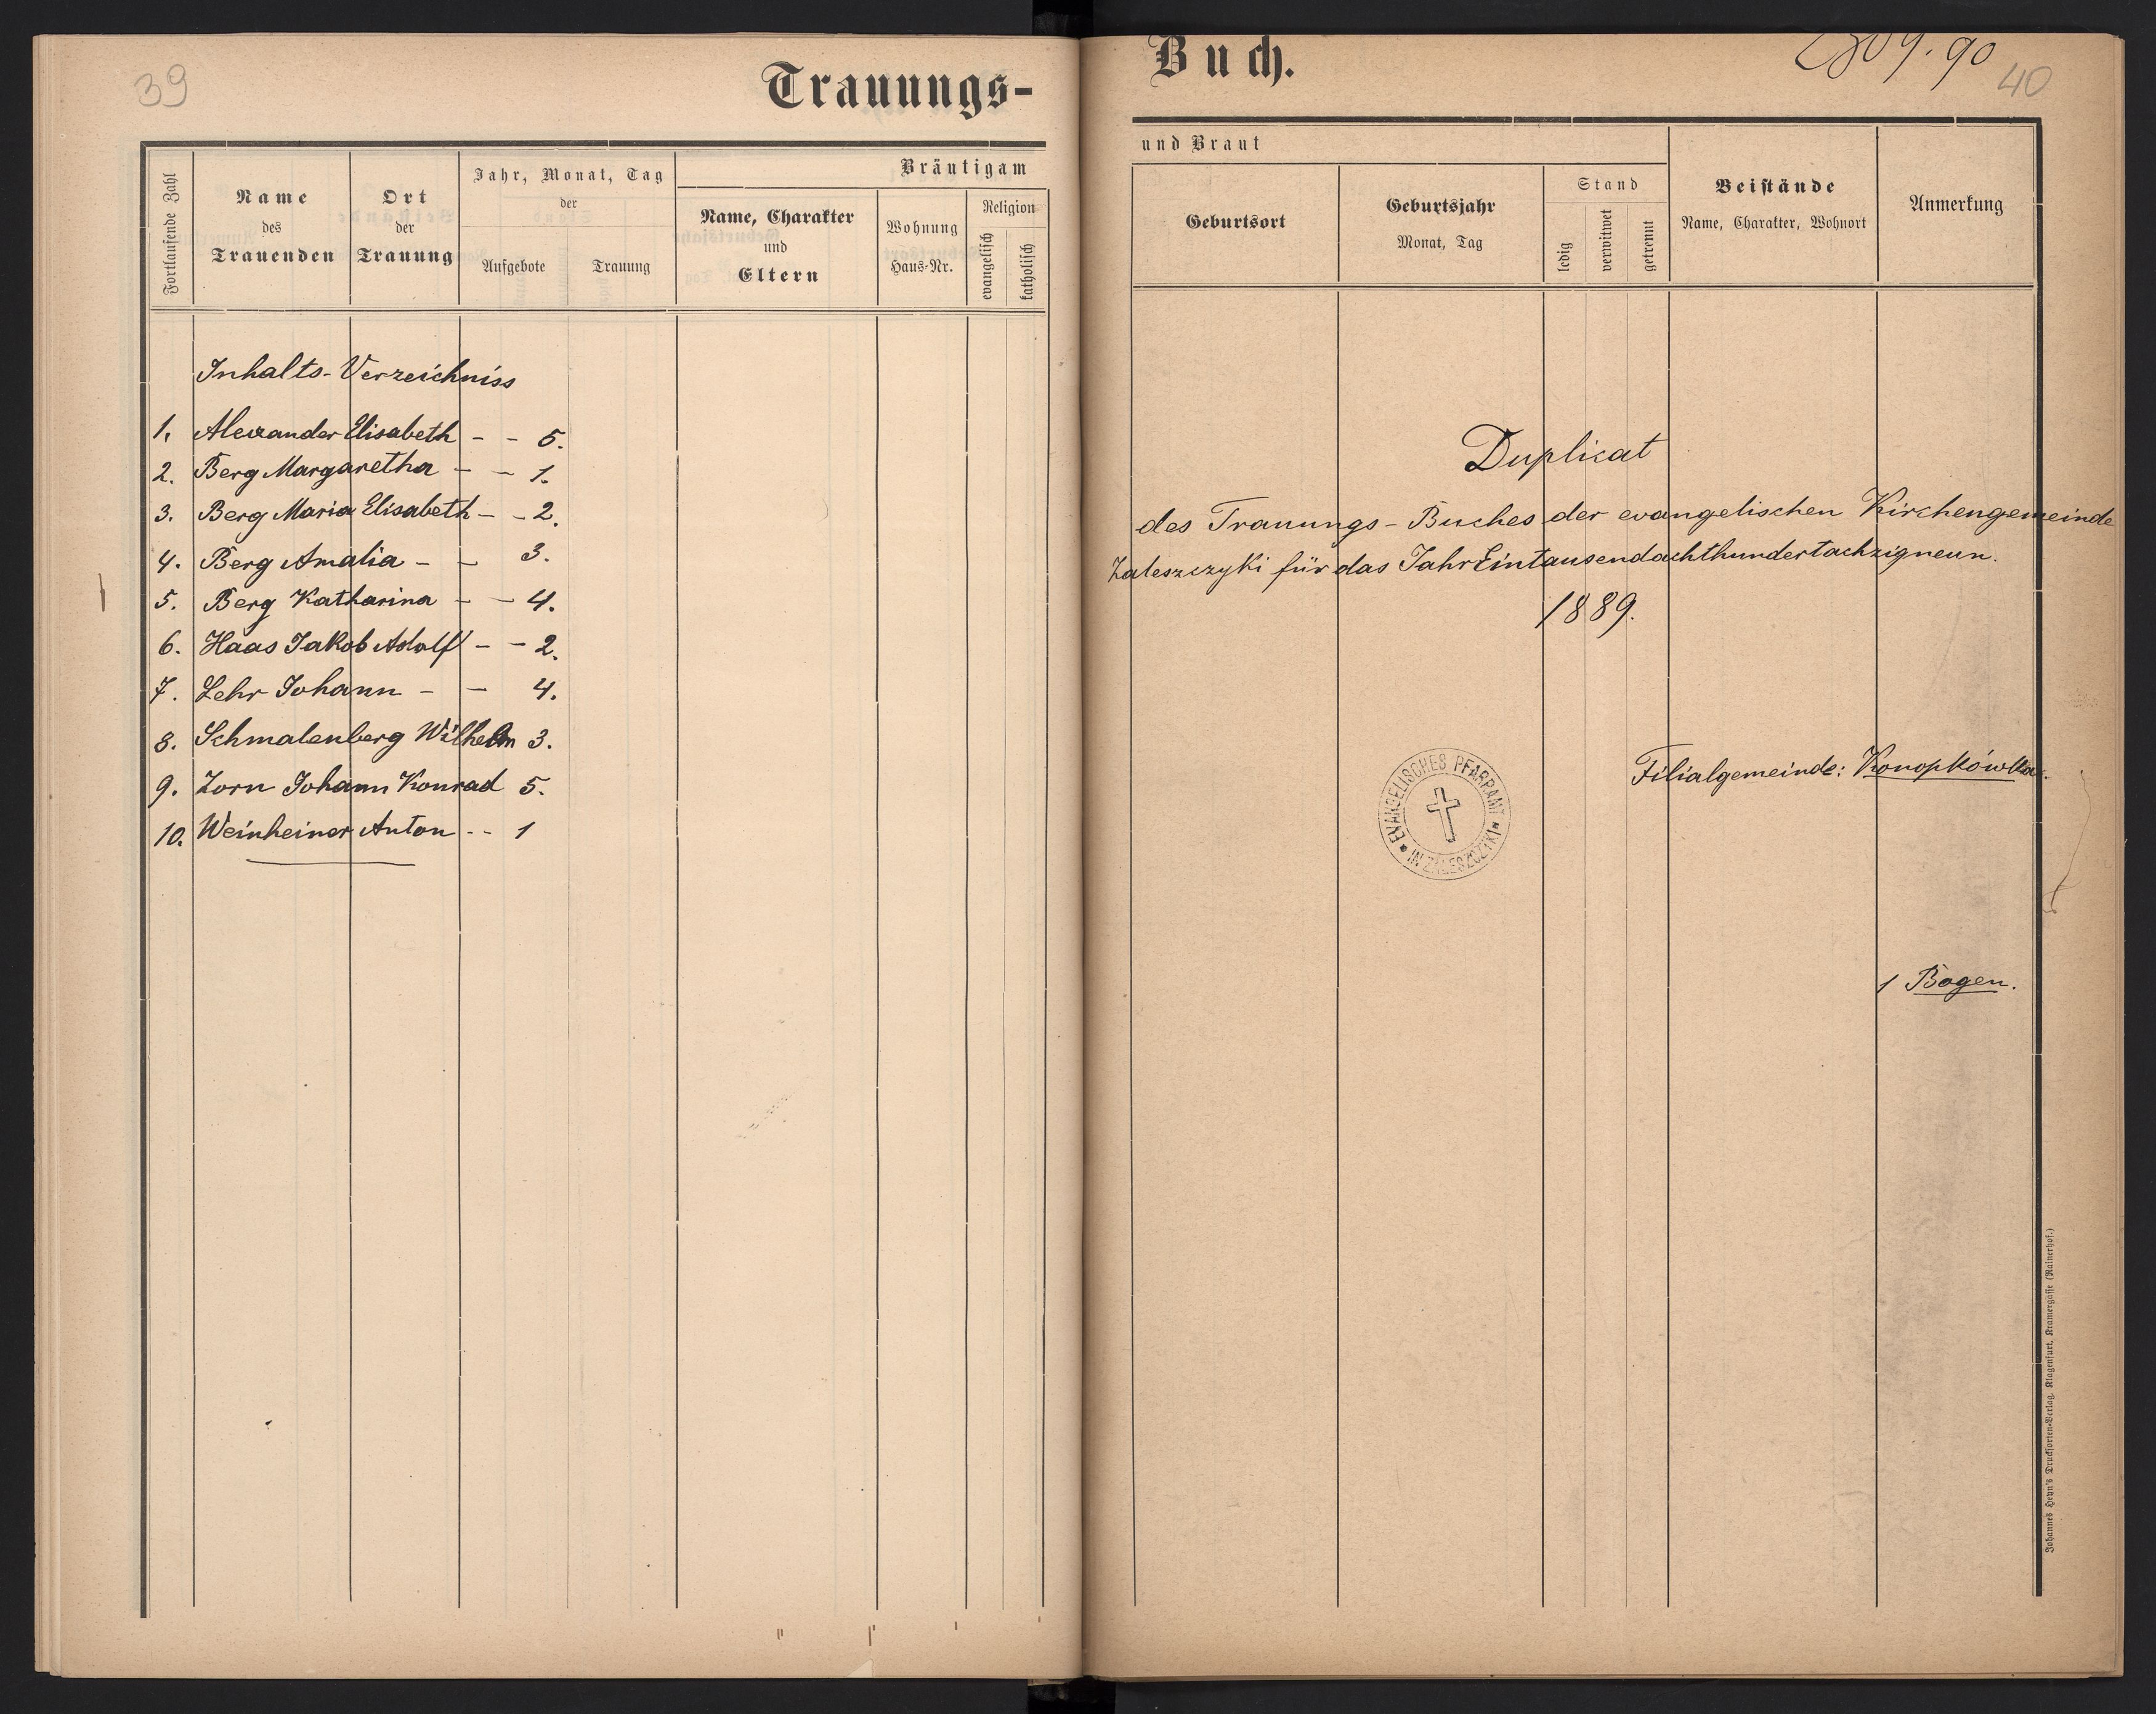 39
Trauungs-
Fortlaufende Zahl
Name
des
Trauenden
Ort
der
Trauung
Jahr, Monat, Tag
der
Aufgebote
Trauung
Bräutigam
Name, Charakter
und
Eltern
Wohnung
Haus-Nr.
Religion
evangelisch
katholisch
Inhalts-Verzeichniss
1. Alexander Elisabeth - - 5.
2. Berg Margaretha - - 1.
3. Berg Maria Elisabeth - - 2.
4. Berg Amalia - - 3.
5. Berg Katharina - - 4.
6. Haas Jakob Adolf - - 2.
7. Lehr Johann - - 4.
8. Schmalenberg Wilhelm 3.
9. Zorn Johann Konrad 5.
10. Weinheimer Anton - - 1
Buch.
40
und Braut
Geburtsort
Geburtsjahr
Monat, Tag
Stand
ledig
verwitwet
getrennt
Beistände
Name, Charakter, Wohnort
Anmerkung
Duplicat
des Trauungs-Buches der evangelischen Kirchengemeinde
Zaleszczyki für das Jahr Eintausendachthundertachzigneun.
1889.
Filialgemeinde: Konopkówka.
EVANGELISCHES PFARRAMT
* IN ZALESZCZYKI *
1 Bogen.
Johannes Heyn's Drucksorten-Verlag, Klagenfurt, Kramergasse (Rainerhof.)